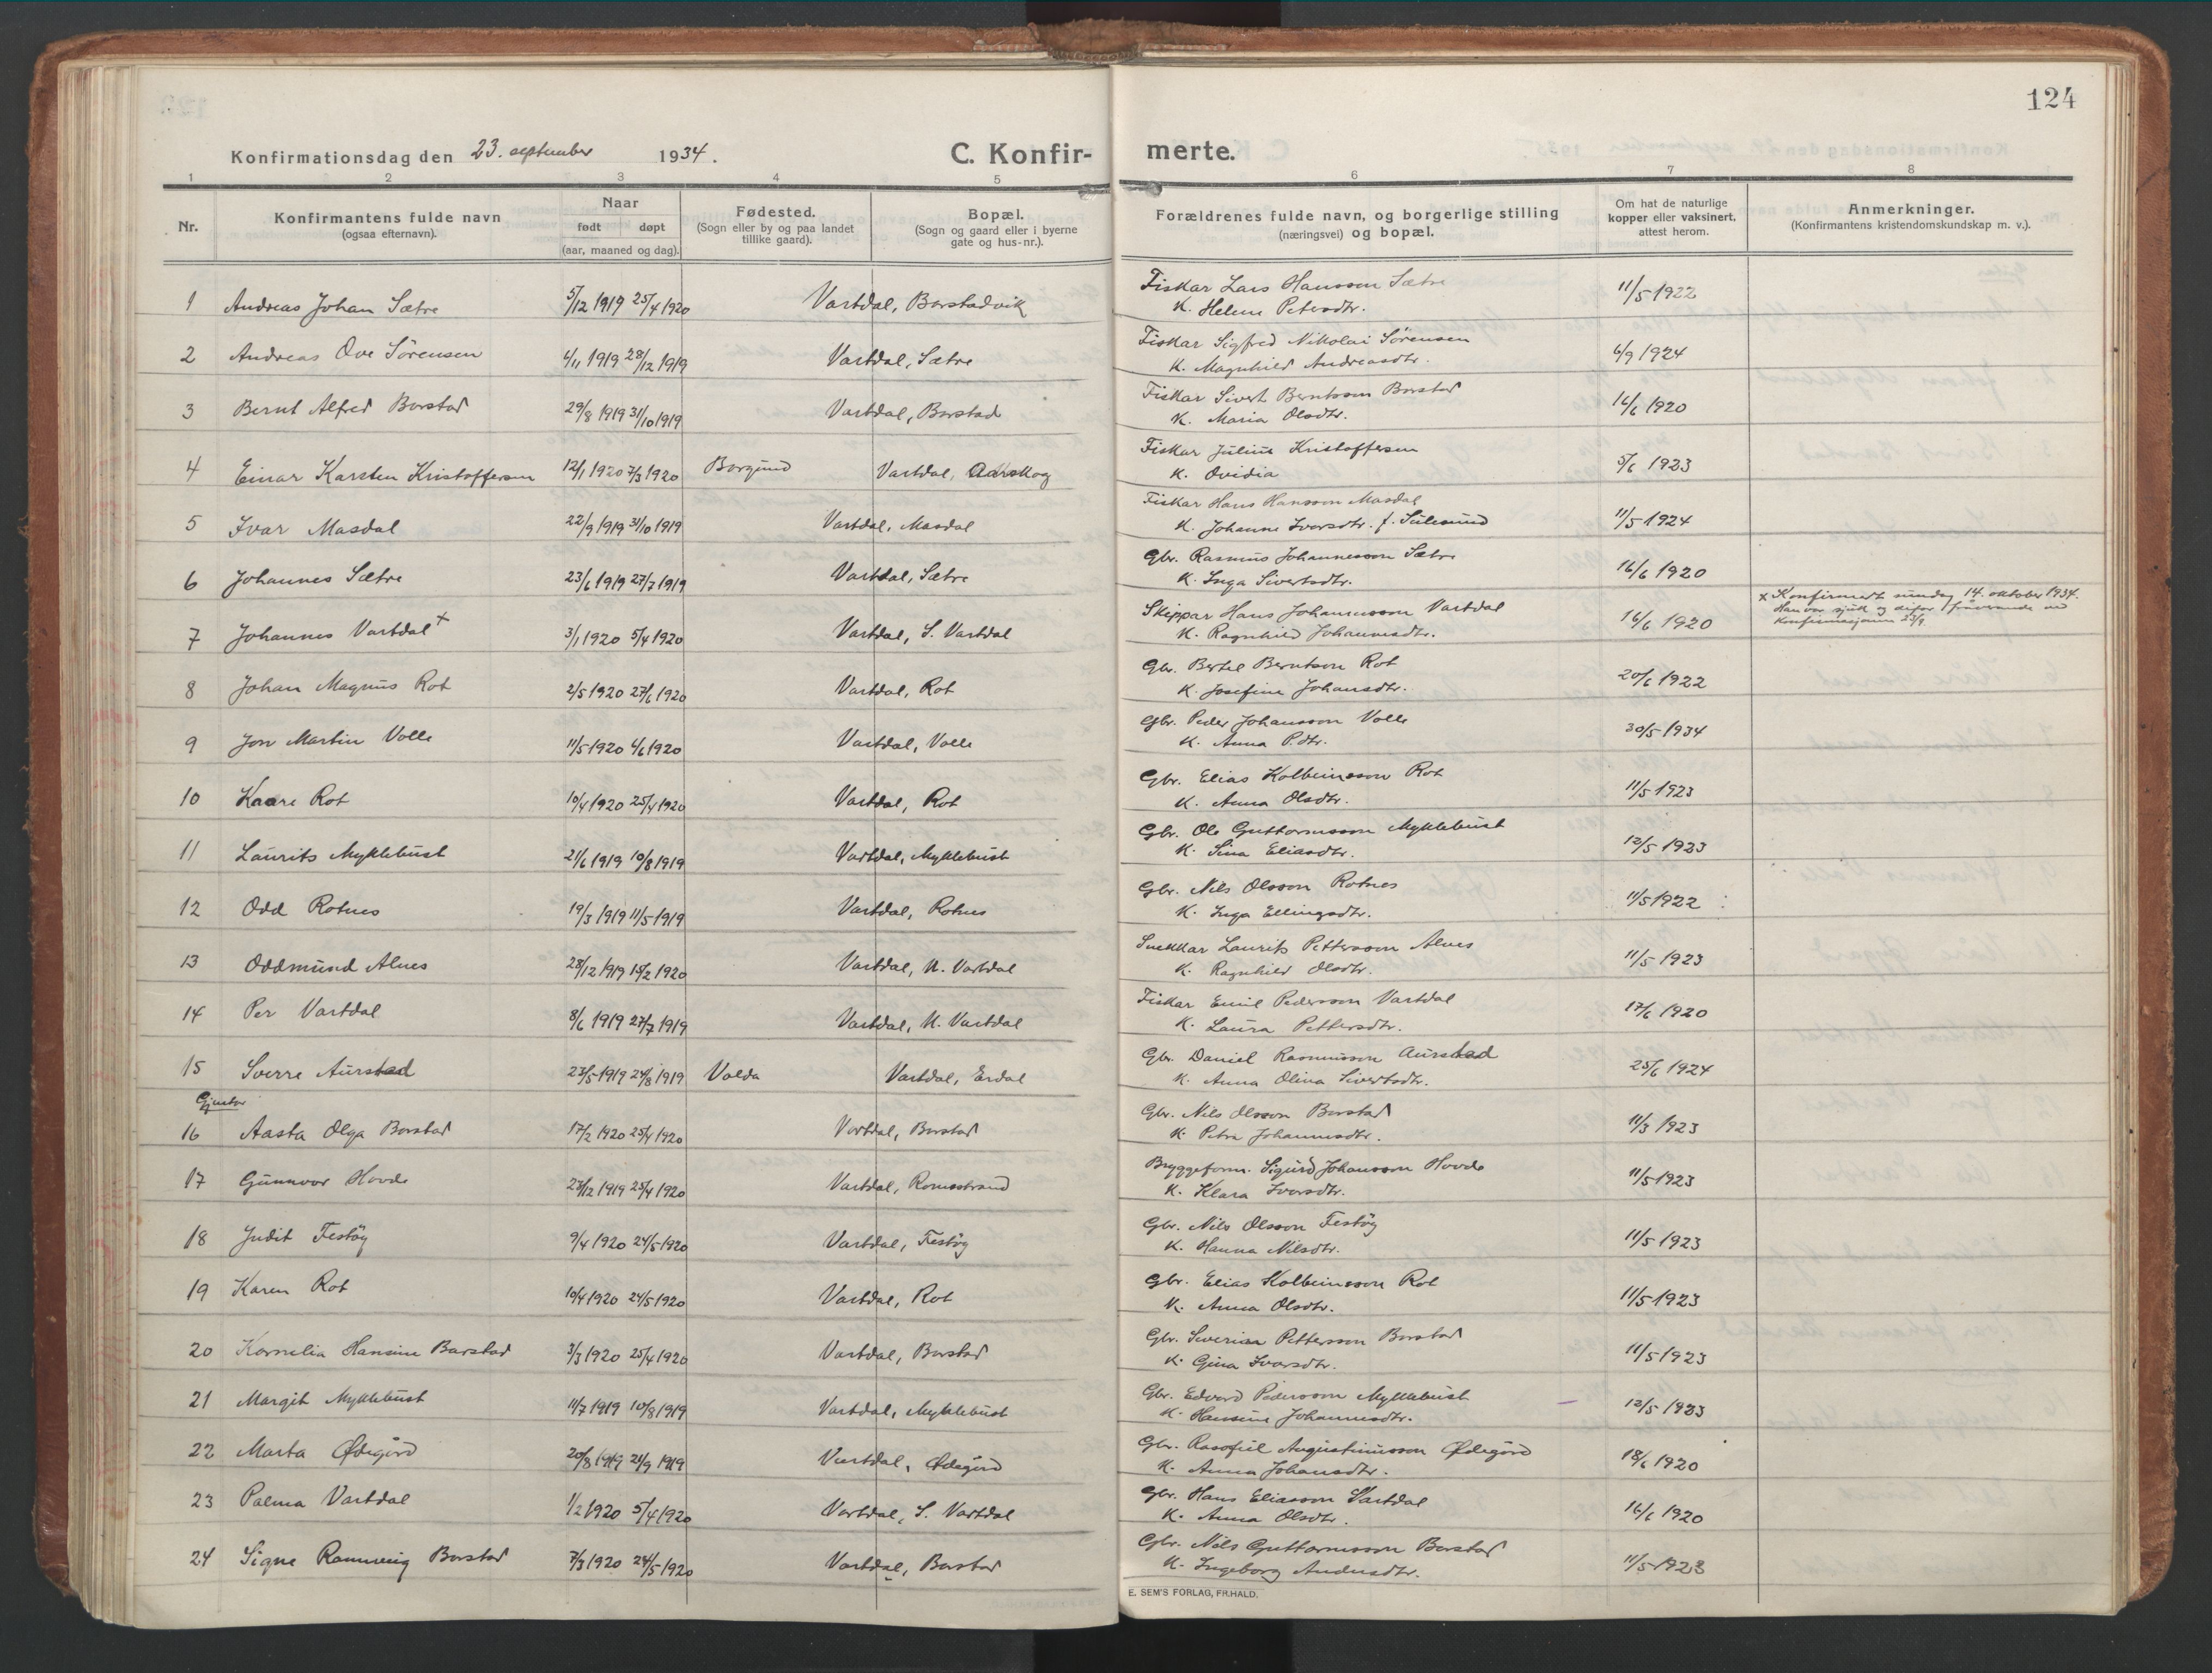 124
Konfirmationsdag den 23. september 1934. C. Konfir- merte.
1 2 3 4 5 6 7 8
Nr. Konfirmantens fulde navn (ogsaa efternavn). Naar født døpt (aar, maaned og dag). Fødested. (Sogn eller by og paa landet tillike gaard). Bopæl. (Sogn og gaard eller i byerne gate og hus-nr.). Forældrenes fulde navn, og borgerlige stilling (næringsvei) og bopæl. Om hat de naturlige kopper eller vaksinert, attest herom. Anmerkninger. (Konfirmantens kristendomskundskap m. v.).
1 Andreas Johan Sætre 5/12 1919 25/4 1920 Vartdal, Barstadvik Fiskar Lars Hansson Sætre 11/5 1922
K. Helene Petersdtr.
2 Andreas Ove Sörensen 4/11 1919 28/12 1919 Vartdal, Sætre Fiskar Sigfred Nikolai Sörensen 6/9 1924
K. Magnhild Andreasdtr.
3 Bernt Alfred Barstad 29/8 1919 31/10 1919 Vartdal, Barstad Fiskar Sivert Berntsson Barstad 16/6 1920
K. Maria Olsdtr.
4 Einar Karsten Kristoffersen 12/1 1920 7/3 1920 Borgund Vartdal, Aarskog Fiskar Julius Kristoffersen 5/6 1923
K. Ovidia
5 Ivar Masdal 22/9 1919 31/10 1919 Vartdal, Masdal Fiskar Hans Hansson Masdal 11/5 1924
K. Johanne Iversdtr. f. Sulesund
6 Johannes Sætre 23/6 1919 27/7 1919 Vartdal, Sætre Gbr. Rasmus Johannesson Sætre 16/6 1920
K. Inga Sivertsdtr.
7 Johannes Vartdal x 3/1 1920 5/4 1920 Vartdal, S. Vartdal Skippar Hans Johannesson Vartdal 16/6 1920
K. Ragnhild Johannesdtr.
x Konfirmert sundag 14. oktober 1934.
Han var sjuk og difor fråverande ved
konfirmasjonen 23/9.
8 Johan Magnus Rot 2/5 1920 27/6 1920 Vartdal, Rot Gbr. Bertel Berntson Rot 20/6 1922
K. Josefine Johansdtr.
9 Jon Martin Volle 11/5 1920 4/6 1920 Vartdal, Volle Gbr. Peder Johansson Volle 30/5 1934
K. Anna P.dtr.
10 Kaare Rot 10/4 1920 25/4 1920 Vartdal, Rot Gbr. Elias Kolbeinsson Rot 11/5 1923
K. Anna Olsdtr.
11 Laurits Myklebust 21/6 1919 10/8 1919 Vartdal, Myklebust Gbr. Ole Guttormsson Myklebust 12/5 1923
K. Sina Eliasdtr.
12 Odd Rotnes 19/3 1919 11/5 1919 Vartdal, Rotnes Gbr. Nils Olsson Rotnes 11/5 1922
K. Inga Ellingsdtr.
13 Oddmund Alnes 28/12 1919 15/2 1920 Vartdal, N. Vartdal Snekkar Laurits Pettersson Alnes 11/5 1923
K. Ragnhild Olsdtr.
14 Per Vartdal 8/6 1919 27/7 1919 Vartdal, N. Vartdal Fiskar Emil Pedersson Vartdal 17/6 1920
K. Laura Pettersdtr.
15 Sverre Aurstad 23/5 1919 24/8 1919 Volda Vartdal, Erdal Gbr. Daniel Rasmusson Aurstad 25/6 1924
K. Anna Olina Sivertsdtr.
Gjentor
16 Aasta Olga Barstad 17/2 1920 25/4 1920 Vartdal, Barstad Gbr. Nils Olsson Barstad 11/3 1923
K. Petra Johannesdtr.
17 Gunnvor Hovde 23/12 1919 25/4 1920 Vartdal, Romestrand Bryggeform. Sigurd Johansson Hovde 11/5 1923
K. Klara Iversdtr.
18 Judit Festöy 9/4 1920 24/5 1920 Vartdal, Festöy Gbr. Nils Olsson Festöy 11/5 1923
K. Hanna Nilsdtr.
19 Karen Rot 10/4 1920 24/5 1920 Vartdal, Rot Gbr. Elias Kolbeinsson Rot 11/5 1923
K. Anna Olsdtr.
20 Kornelia Hansine Barstad 3/3 1920 25/4 1920 Vartdal, Barstad Gbr. Severian Pettersson Barstad 11/5 1923
K. Gina Iversdtr.
21 Margit Myklebust 11/7 1919 10/8 1919 Vartdal, Myklebust Gbr. Edvard Pedersson Myklebust 12/5 1923
K. Hansine Johannesdtr.
22 Marta Ødegård 20/8 1919 21/9 1919 Vartdal, Ødegård Gbr. Augustinusson Ødegård 18/6 1920
K. Anna Johansdtr.
23 Palma Vartdal 1/2 1920 5/4 1920 Vartdal, S. Vartdal Gbr. Hans Eliasson Vartdal 16/6 1920
K. Anna Olsdtr.
24 Signe Rannveig Barstad 7/3 1920 24/5 1920 Vartdal, Barstad Gbr. Nils Guttormsson Barstad 11/5 1923
K. Ingeborg Andersdtr.
E. SEM'S FORLAG, FR.HALD.